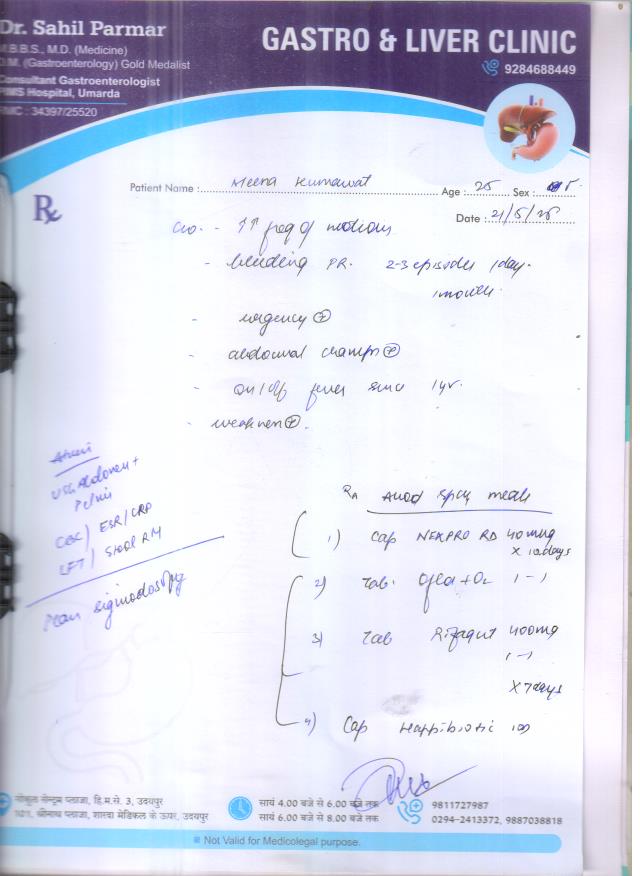 Dr. Sahil Parmar
M.B.B.S., M.D. (Medicine)
D.M. (Gastroenterology) Gold Medalist
Consultant Gastroenterologist
PIMS Hospital, Umarda
RMC : 34397/25520
GASTRO & LIVER CLINIC
9284688449
Patient Name : Meena Kumawat Age : 25 Sex : F.
Rx
Date : 21/5/25
c/o. - ↑↑ freq of motions
- bleeding PR. 2-3 episodes / day.
1 month.
- urgency ⊕
- abdominal cramps ⊕
- on/off fever since 1 yr.
- weakness ⊕.
Advice
USG Abdomen +
Pelvis
CBC) ESR/CRP
LFT) Stool RM
Plan sigmodoscopy
Rx Avoid spicy meals
1) Cap NEXPRO RD 40mg
X 10 days
2) Tab. Ofla + Oz 1-1
3) Tab Rifagut 400mg
1-1
X 7 days
4) Cap Happibiotic
गोकुल सेन्ट्रम प्लाजा, हि.म.से. 3, उदयपुर
101, श्रीनाथ प्लाजा, शारदा मेडिकल के ऊपर, उदयपुर
सायं 4.00 बजे से 6.00 बजे तक
सायं 6.00 बजे से 8.00 बजे तक
9811727987
0294-2413372, 9887038818
Not Valid for Medicolegal purpose.